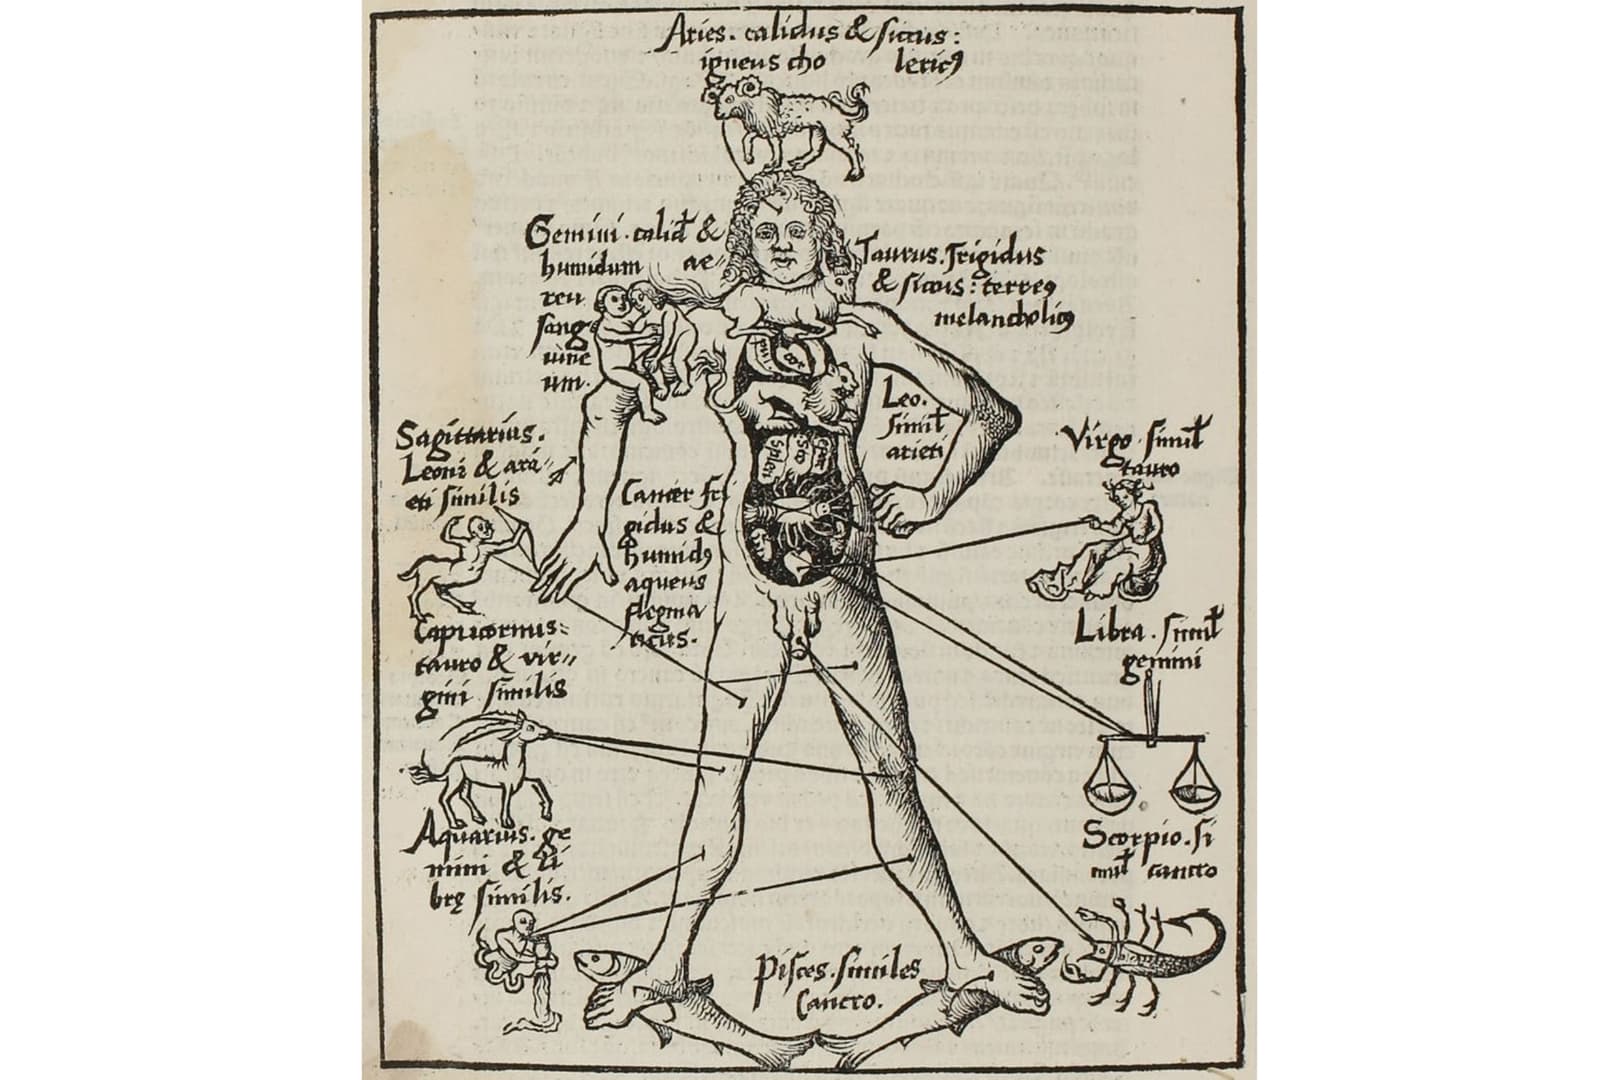 Aries. calidus & siccus:
igneus cho lericꝰ
Gemini. calid &
humidum ae
reu
sang
uine
um.
Taurus. frigidus
& siccus: terreꝰ
melancholicꝰ
Leo.
simil
arieti
Sagittarius.
Leoni & ari
eti similis
Virgo. simil
tauro
Cancer fri
gidus &
humidꝰ
aqueus
flegma
ticus.
splen
Capricornus:
tauro & vir
gini similis
Libra. simil
gemini
Aquarius. ge
mini & li
brę similis.
Scorpio. si
mil cancro
Pisces. similes
Cancro.